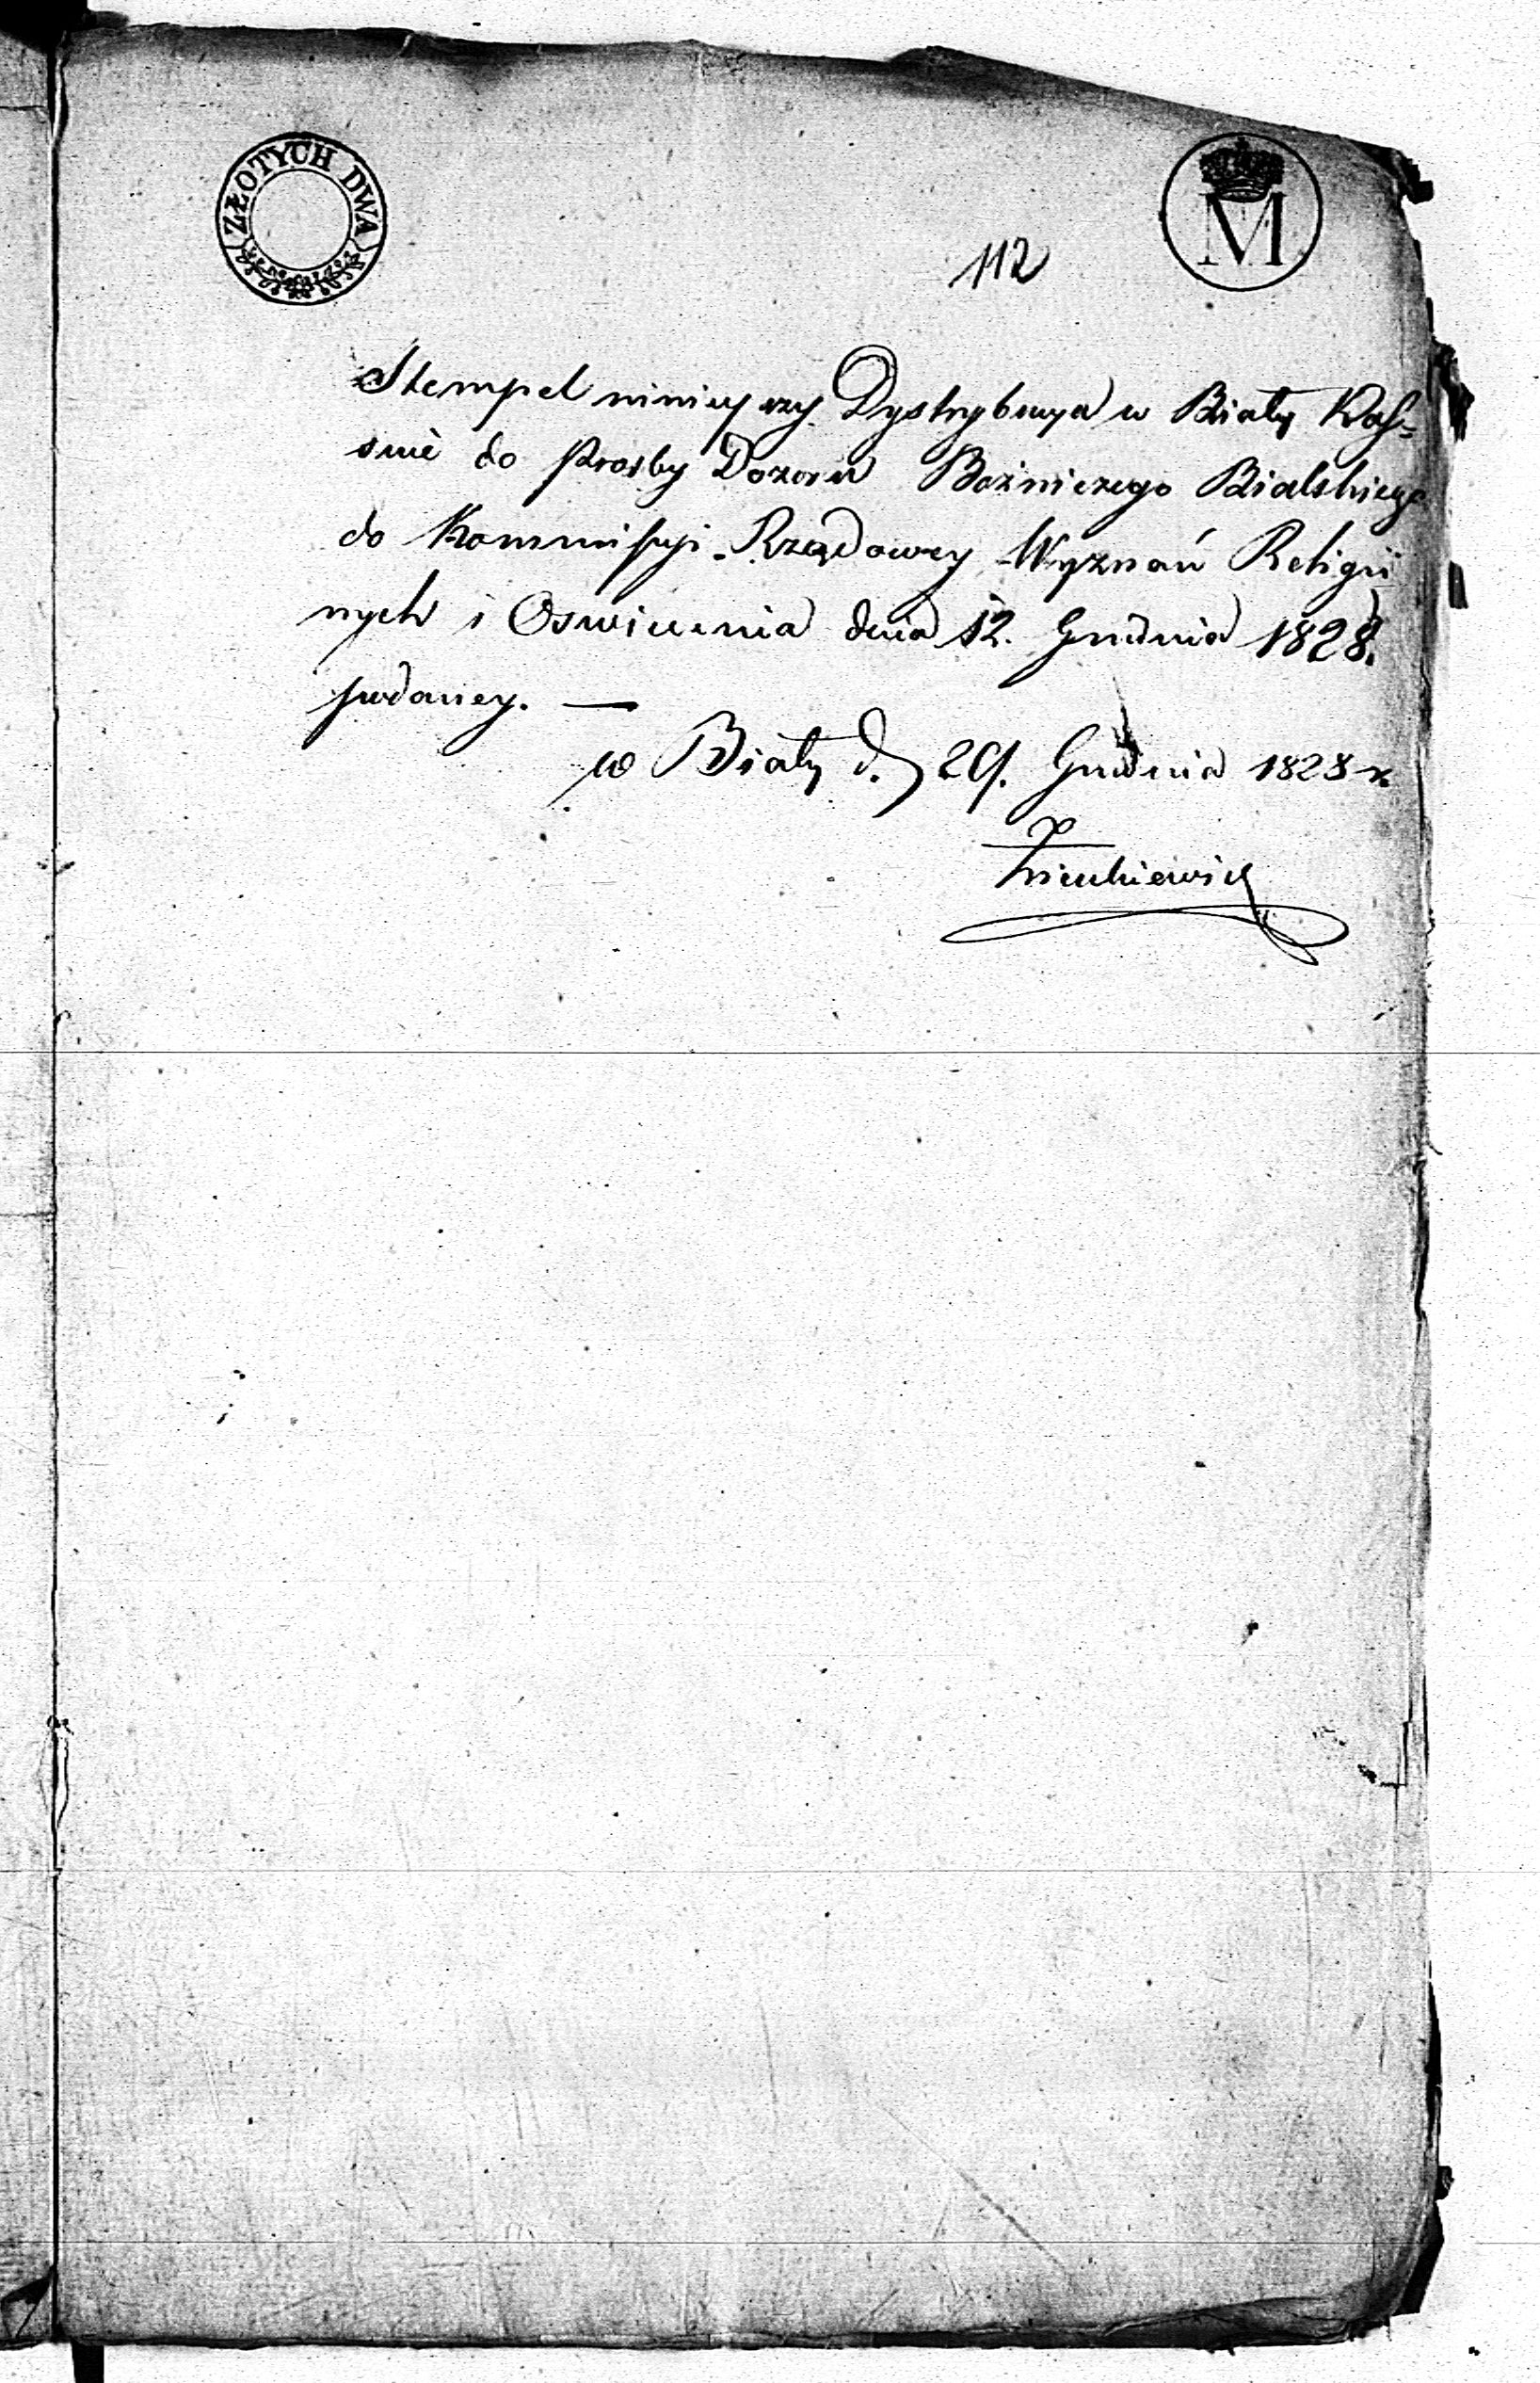 ZŁOTYCH DWA
M
112
Stempel ninieyszy Dystrybucya w Biały Kas=
suie do Prośby Dozoru Bożniczego Bialskiego
do Kommissyi Rządowey Wyznań Religii
nych i Oswiecenia dnia 12. Grudnia 1828.
podaney. —
w Biały d. 29. Grudnia 1828 r.